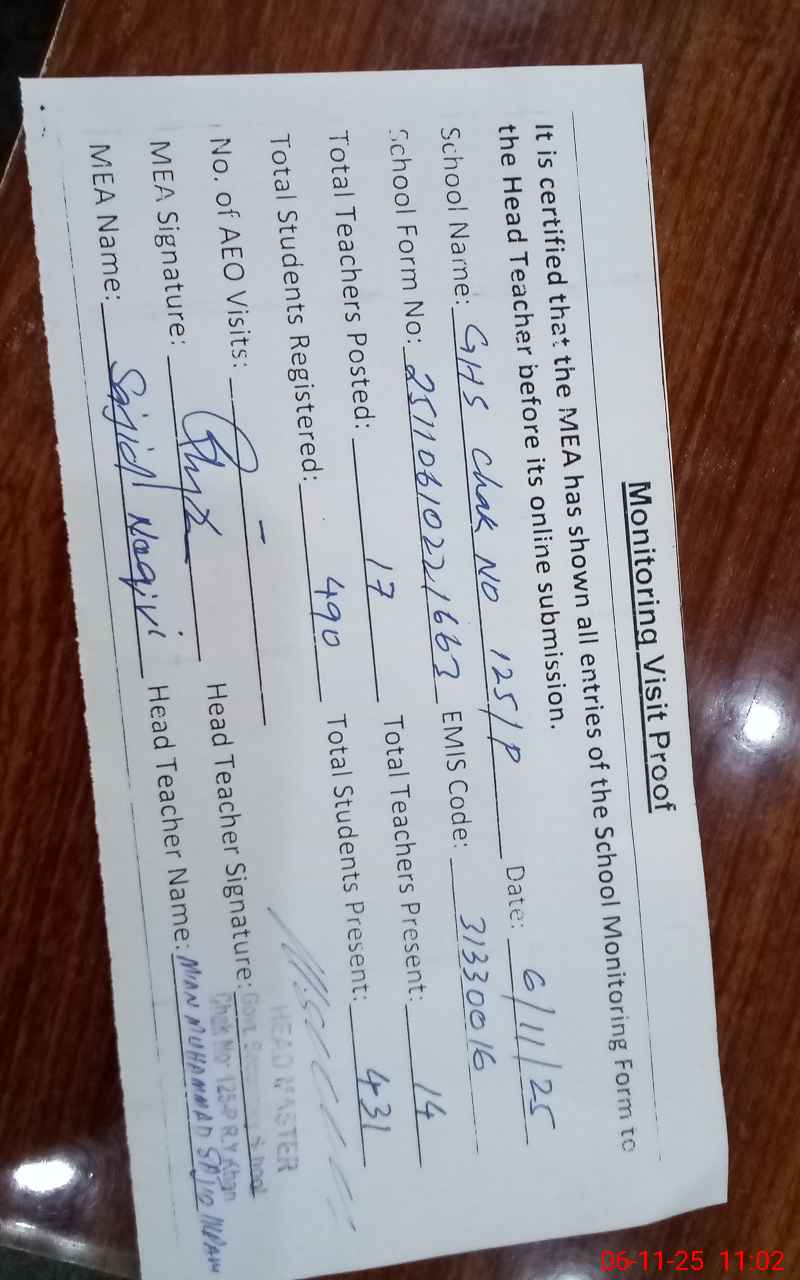 Monitoring Visit Proof
It is certified that the MEA has shown all entries of the School Monitoring Form to
the Head Teacher before its online submission.
School Name: GHS Chak NO 125/P Date: 6/11/25
School Form No: 25110610221663 EMIS Code: 31330016
Total Teachers Posted: 17 Total Teachers Present: 14
Total Students Registered: 490 Total Students Present: 431
No. of AEO Visits: –
MEA Signature: Head Teacher Signature:
HEAD MASTER
Govt. Secondary School
Chak No 125-P R.Y.Khan
MEA Name: Sajid Naqivi Head Teacher Name: MIAN MUHAMMAD SAJID
06-11-25 11:02